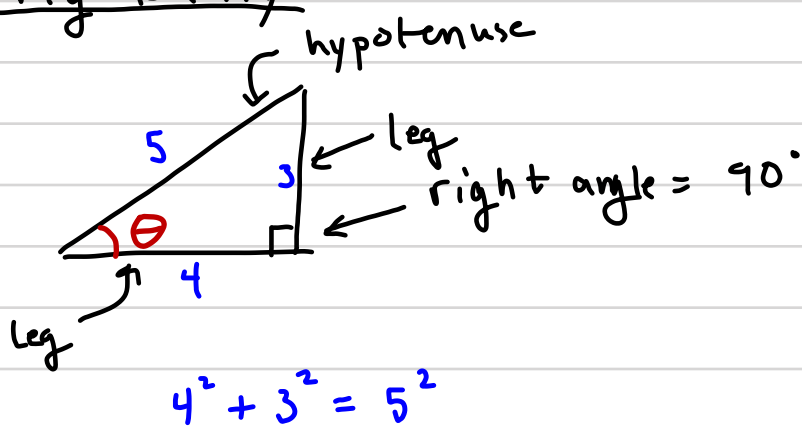 hypotenuse
5
3
leg
right angle = 90°
θ
4
Leg
4² + 3² = 5²